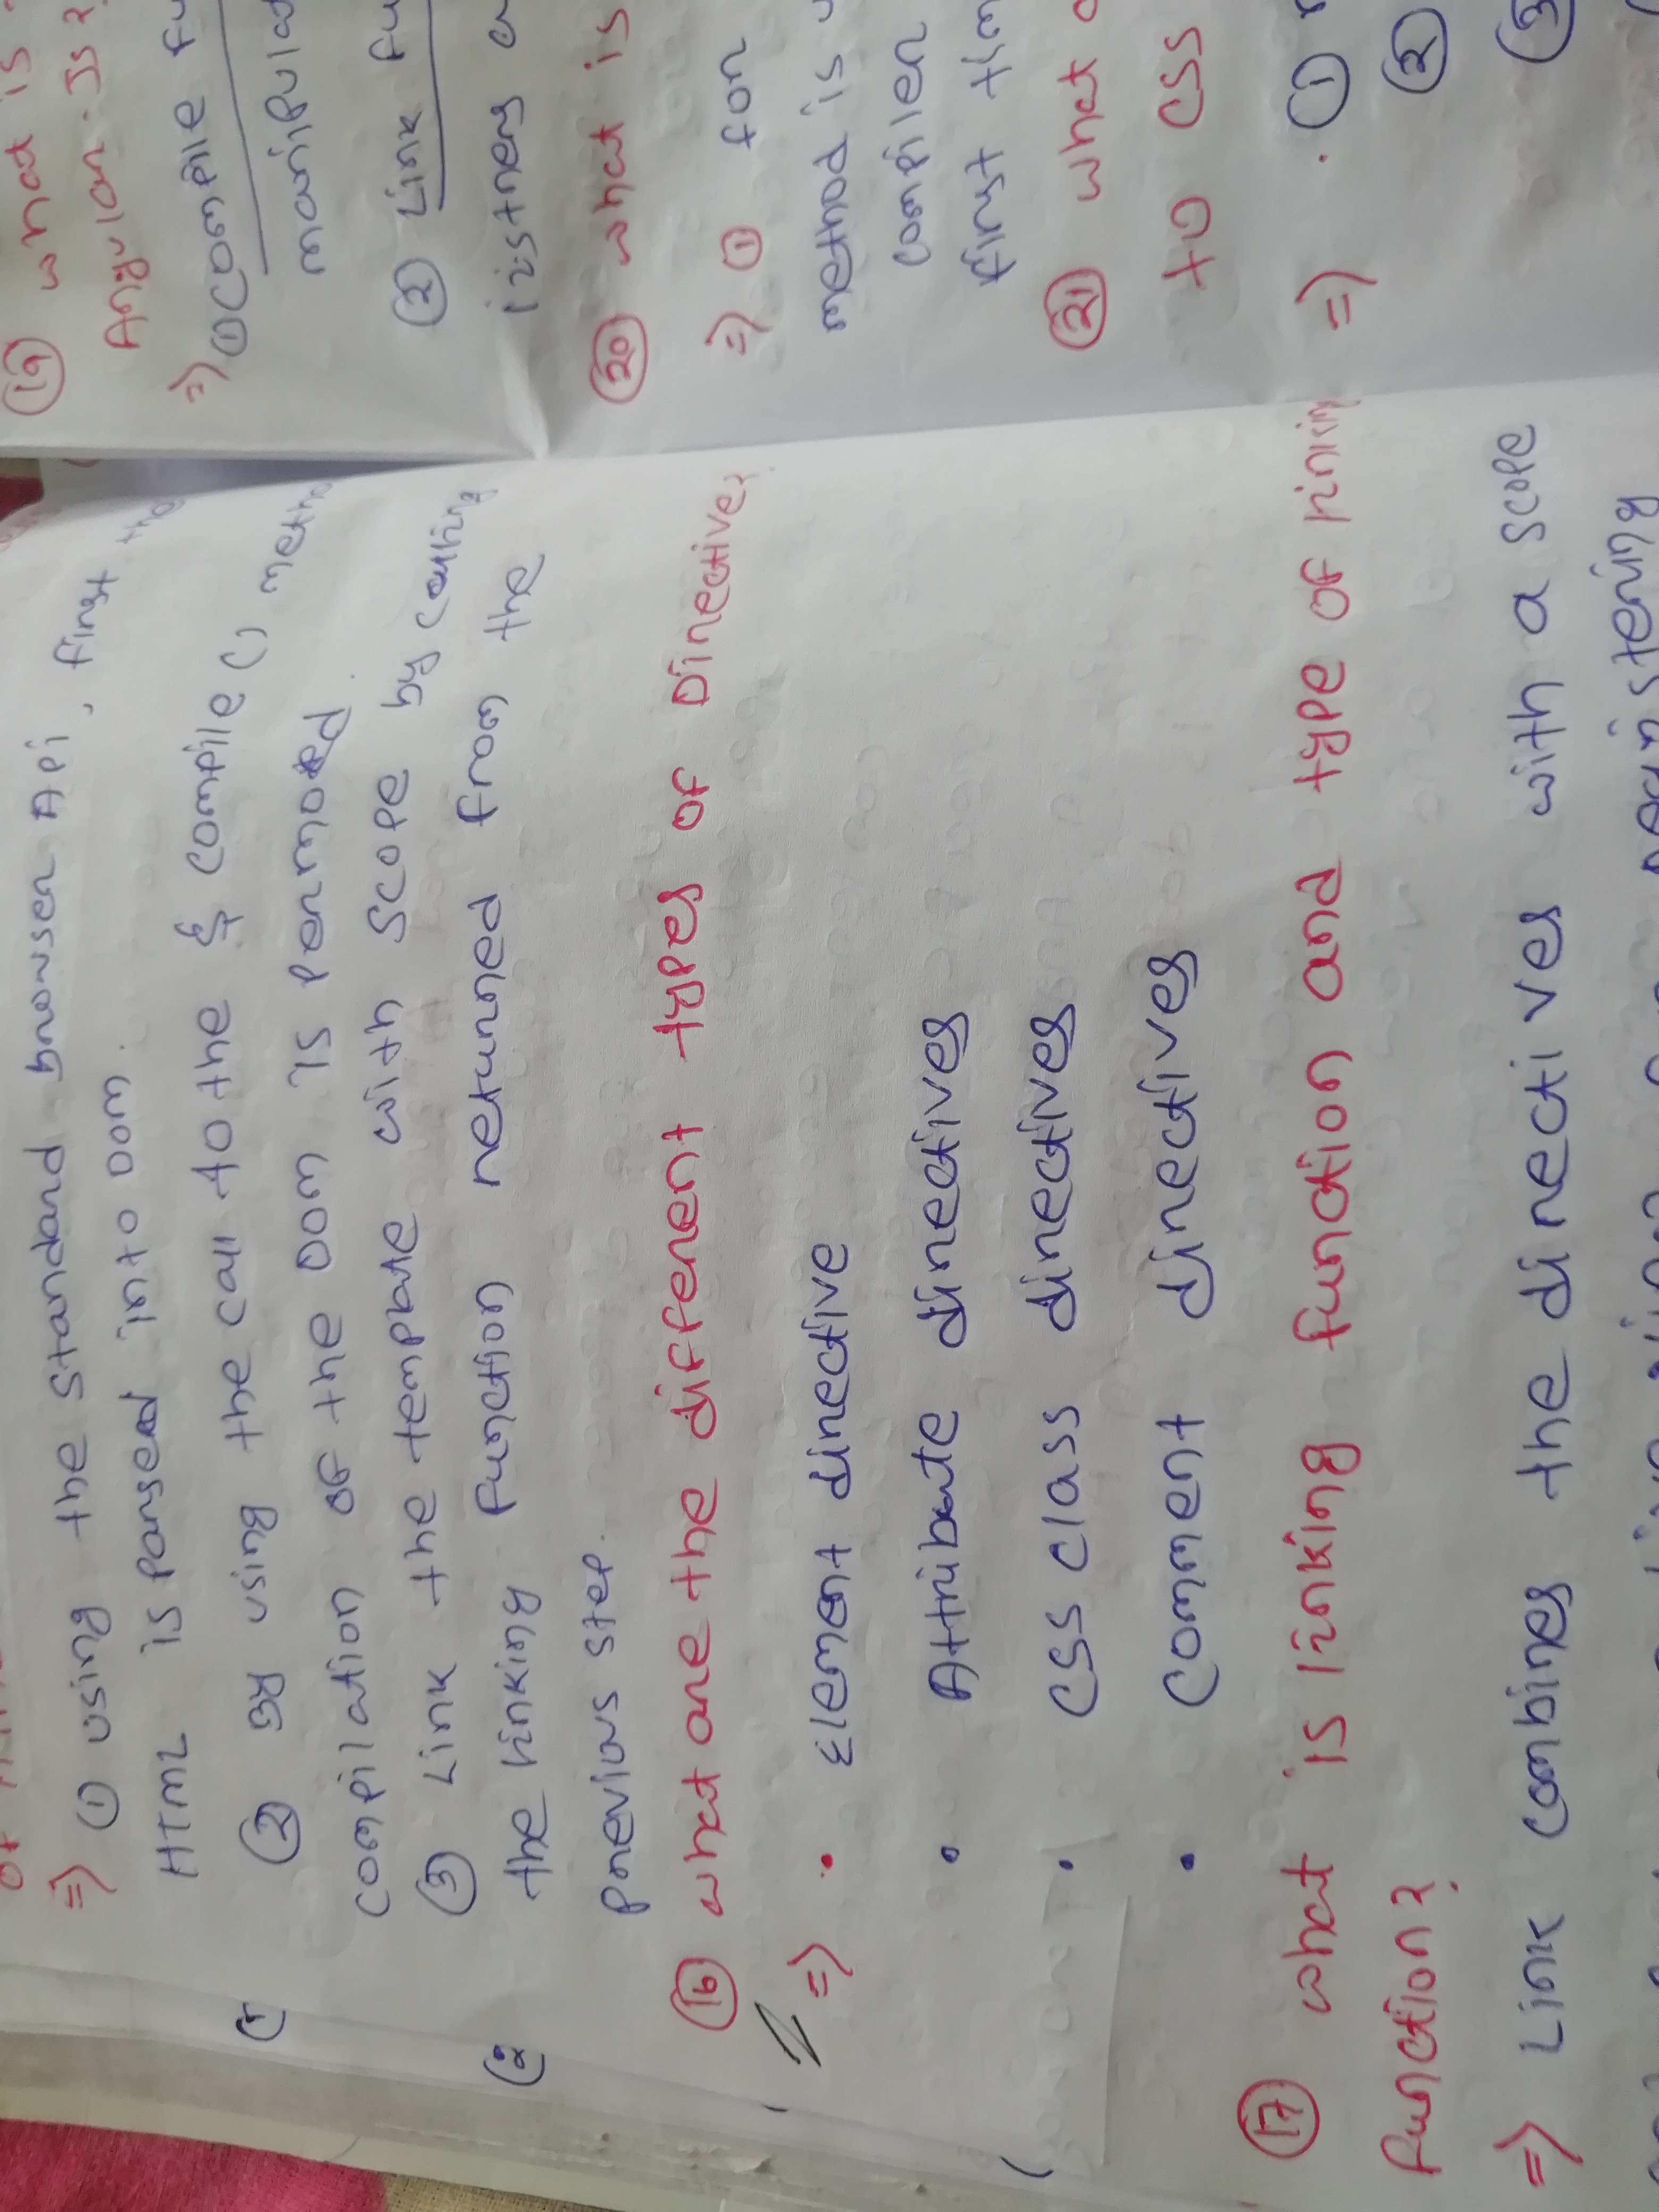 ⇒ ① using the standard browser Api, first the
HTML is parsed into DOM.
② By using the call to the $ compile () metho
compilation of the DOM is permored.
③ Link the template with scope by calling
the linking function returned from the
previous step.
⑯ what are the different types of Directive?
⇒ • Element directive
• Attribute directives
• CSS class directives
• Comment directives
⑰ what is linking function and type of linking
function?
⇒ Link combines the directives with a scope
registering
⑲ what is
Angular-Js?
⇒ ① compile fu
manipulat
② Link fu
listners a
⑳ what is
⇒ ① for
method is u
compiler
first tim
㉑ what
to CSS
⇒ . ①
②
③